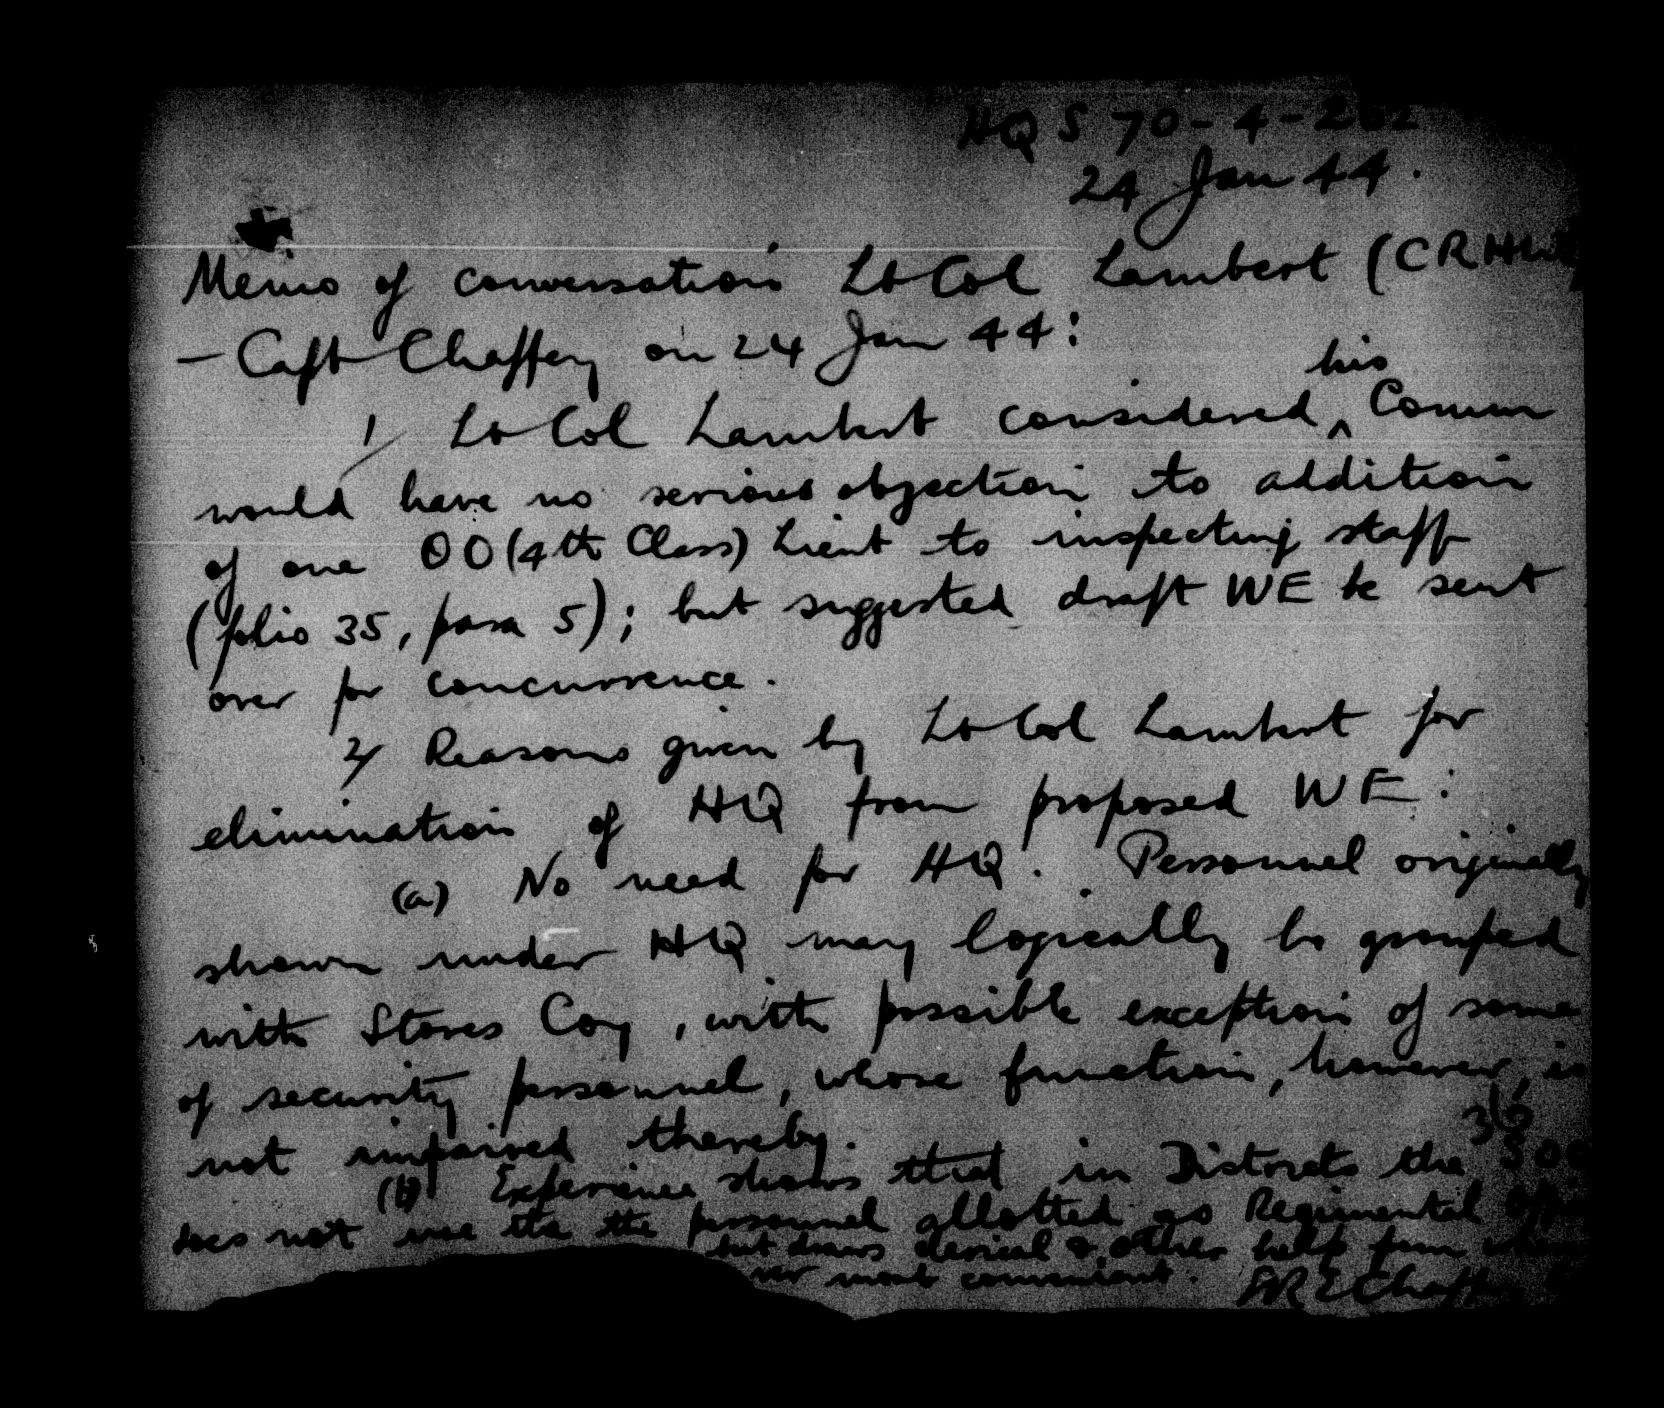 HQ S 70-4-202
24 Jan 44.
Memo of conversation Lt Col Lambert
— Capt Chaffey on 24 Jan 44:
his
1/ Lt Col Lambert considered ^ Comm
would have no serious objection to addition
of one OO (4th Class) Lieut to inspecting staff
(folio 35, para 5); but suggested draft WE be sent
over for concurrence.
2/ Reasons given by Lt Col Lambert for
elimination of HQ from proposed WE:
(a) No need for HQ. Personnel originally
shown under HQ may logically be grouped
with Stores Coy, with possible exception of some
of security personnel, whose function, however, is
not impaired thereby.
36
(b) Experience shows that in Districts the
does not use the the personnel allotted as Regimental
but draws clerical & other help from
most convenient.